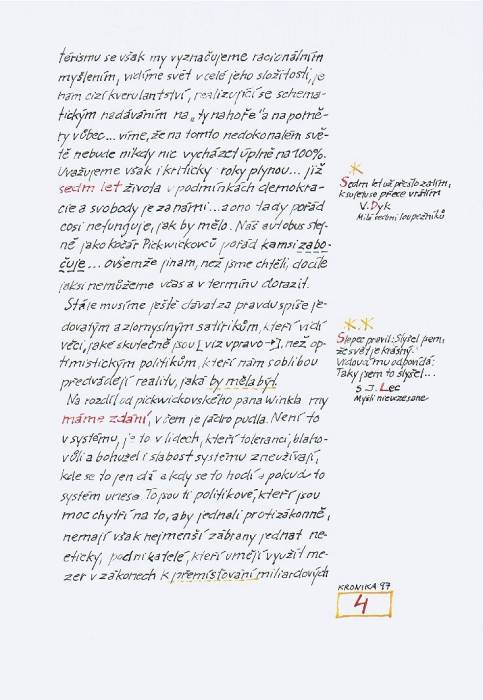 térismu se však my vyznačujeme racionálním
myšlením, vidíme svět v celé jeho složitosti, je
nám cizí kverulantství, realizující se schema-
tickým nadáváním na „ty nahoře" a na pomě-
ry vůbec... víme, že na tomto nedokonalém svě-
tě nebude nikdy nic vycházet úplně na 100%.
Uvažujeme však i kriticky - roky plynou... již
sedm let života v podmínkách demokra-
cie a svobody je za námi... a ono tady pořád
cosi nefunguje, jak by mělo. Náš autobus stej-
ně jako kočár Pickwickovců pořád kamsi zabo-
čuje... ovšemže jinam, než jsme chtěli, docíle
jaksi nemůžeme včas a v termínu dorazit.
Stále musíme ještě dávat za pravdu spíše je-
dovatým a zlomyslným satirikům, kteří vidí
věci, jaké skutečně jsou [viz vpravo →], než op-
timistickým politikům, kteří nám s oblibou
předvádějí realitu, jaká by měla být.
Na rozdíl od pickwickovského pana Winkla my
máme zdání, v čem je jádro pudla. Není to
v systému, je to v lidech, kteří toleranci, blaho-
vůli a bohužel i slabost systému zneužívají,
kde se to jen dá a kdy se to hodí a pokud to
systém unese. To jsou ti politikové, kteří jsou
moc chytří na to, aby jednali protizákonně,
nemají však nejmenší zábrany jednat ne-
eticky, podnikatelé, kteří umějí využít me-
zer v zákonech k přemisťování miliardových
*
Sedm let už přešlo zatím,
k sujetu se přece vrátím
V. Dyk
Milá sedmi loupežníků
*.*
Slepec pravil: Slyšel jsem,
že svět je krásný.
Vidoucí mu odpovídá:
Taky jsem to slyšel...
S. J. Lec
Myśli nieuczesane
KRONIKA 97
4